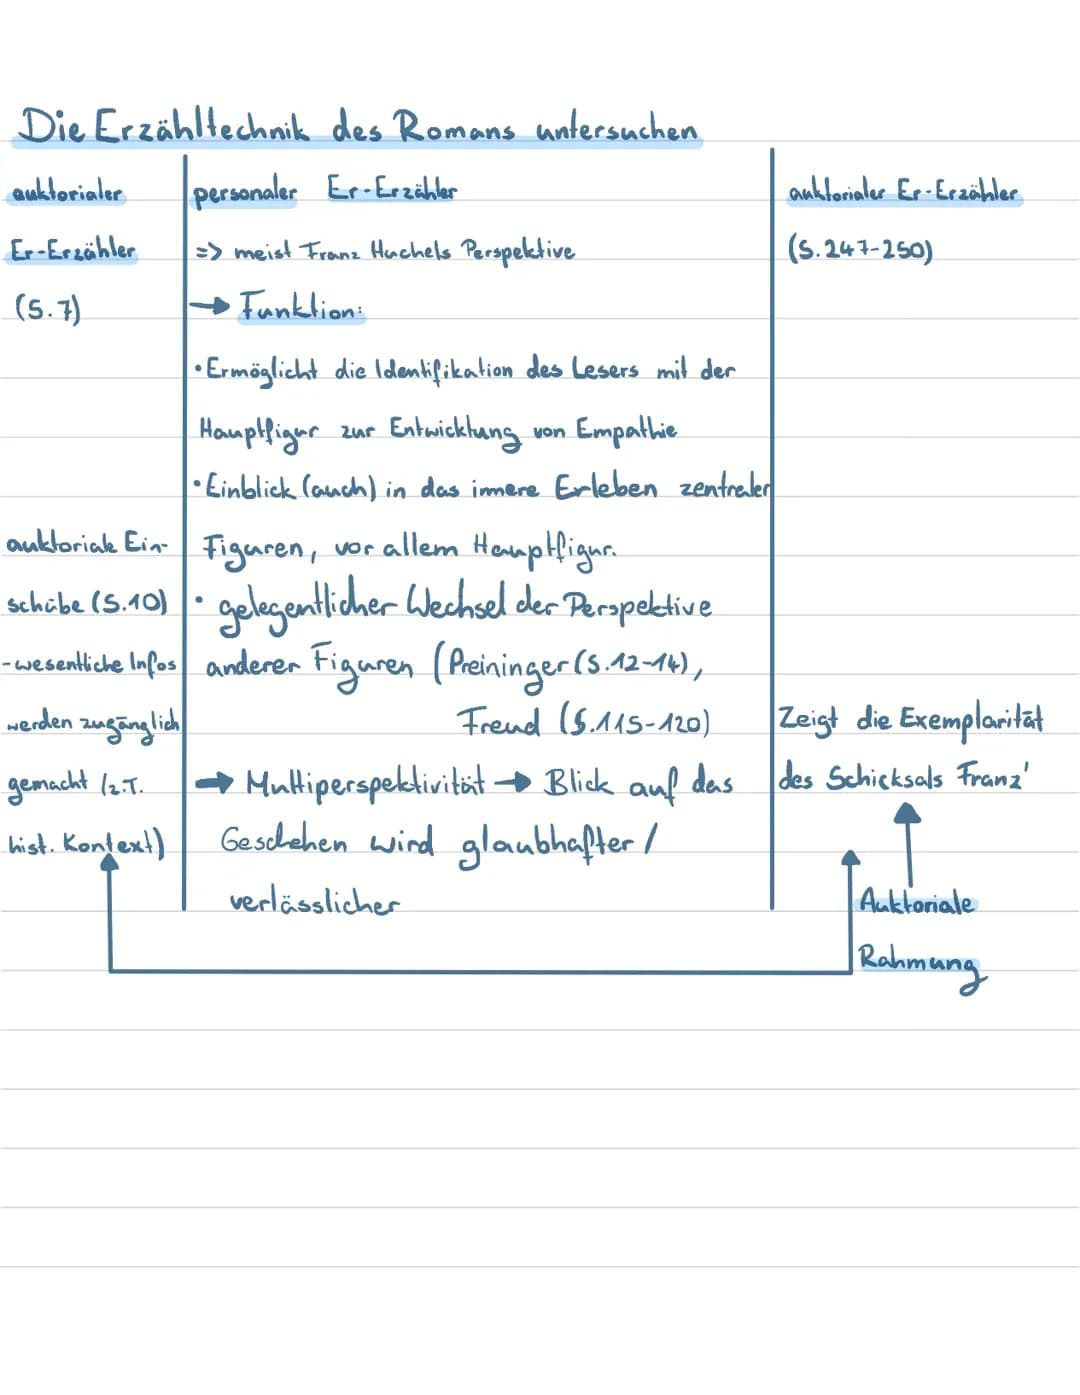 Die Erzähltechnik des Romans untersuchen
auktorialer
Er-Erzähler
(S.7)
auktoriale Ein-
schübe (S.10)
-wesentliche Infos
werden zugänglich
gemacht (z.T.
hist. Kontext)
personaler Er-Erzähler
=> meist Franz Huchels Perspektive
→ Funktion:
• Ermöglicht die Identifikation des Lesers mit der
Hauptfigur zur Entwicklung von Empathie
• Einblick (auch) in das innere Erleben zentraler
Figuren, vor allem Hauptfigur.
• gelegentlicher Wechsel der Perspektive
anderer Figuren (Preininger (S.12-14),
Freud (S.115-120)
→ Multiperspektivität → Blick auf das
Geschehen wird glaubhafter/
verlässlicher
auktorialer Er-Erzähler
(S.247-250)
Zeigt die Exemplarität
des Schicksals Franz'
Auktoriale
Rahmung